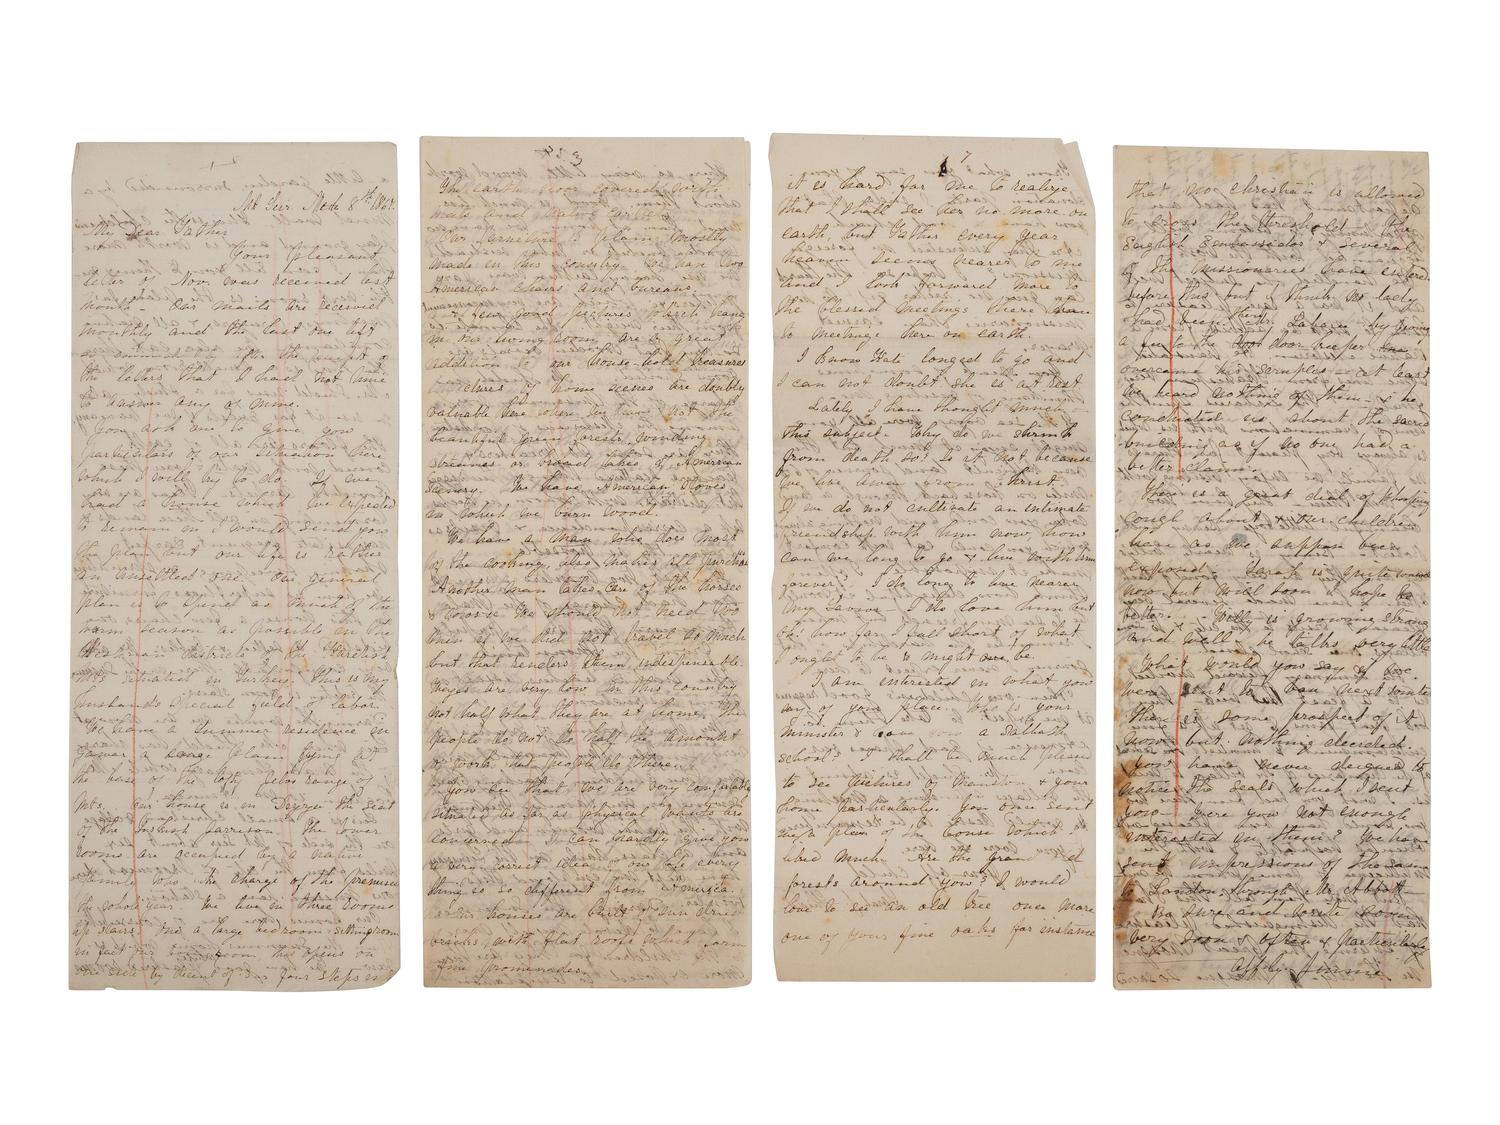 1
Mt Seir. Mch 8th 186
My Dear Father
Your pleasant
letter of Nov. was received last
month - Our mails are received
monthly and the last one left
so immediately after the receipt of
the letters that I had not time
to answer any of mine.
You ask me to give you
particulars of our situation here
which I will try to do. If we
had a house which we expected
to remain in I would send you
the plan but our life is rather
an unsettled one. Our general
plan is to spend as much of the
warm season as possible in the
Mts situated in Turkey. This is my
husband's special field of labor.
We have a summer residence in
Gawar a large plain lying at
the base of the lofty range of
Mts. Our house is in the seat
of the Turkish garrison. The lower
rooms are occupied by a native
family who the charge of the premises
the whole year. We live in three rooms
up stairs. One a large bedroom sitting room
in fact our room this opens on
one side by decent of four steps in
The earth floor covered with
mats and native carpets
Our furniture is plain mostly
made in this country. We have two
American chairs and bureaus.
A few good pictures which hang
in our living room are a great
addition to our house-hold treasures
Pictures of home scenes are doubly
valuable here where we have not the
beautiful green forests winding
streams or broad lakes of American
scenery. We have American stoves
in which we burn wood.
We have a man who does most
of the cooking, also makes all purchases
Another man takes care of the horses
& cows. We should not need two
men if we did not travel so much
but that renders them indispensable.
Wages are very low in this country
not half what they are at home. The
people do not do half the amount
of work that people do there.
You see that we are very comfortably
situated as far as physical wants are
concerned. I can hardly give you
a very correct idea of our life every
thing is so different from America.
Our houses are built of sun dried
bricks with flat roofs which form
fine promenades.
7
it is hard for me to realize
that I shall see her no more on
earth but Father every year
heaven seems nearer to me
and I look forward more to
the blessed meetings there than
to meetings here on earth.
I know Kate longed to go and
I can not doubt she is at rest
Lately I have thought much
this subject. Why do we shrink
from death so? Is it not because
we live away from Christ.
If we do not cultivate an intimate
friendship with him now, how
can we long to go & live with him
forever. I do long to live nearer
my Savior - I do love him but
oh! how far I fall short of what
I ought to be & might be.
I am interested in what you
say of your place. Who is your
minister & have you a Sabbath
school? I shall be much pleased
to see pictures of & your
home particularly. You once sent
me a plan of the house which I
liked much. Are the grand old
forests around you? I would
love to see an old tree once more
one of your fine oaks for instance
that no christian is allowed
to cross the threshold. The
English embassador & several
of the missionaries have entered
before this but I think no lady
had been there. Mr. Labaree by giving
a fee to the door keeper
overcame his scruples - at least
we heard nothing of them - & he
conducted us about the sacred
building as if no one had a
better claim.
There is a great deal of whooping
cough about & our children
have as we suppose been
exposed. Sarah is quite unwell
now but will soon I hope be
better. Willy is growing strong
and well, he talks very little
What would you say if we
were sent to Van next winter
There is some prospect of it
now but nothing decided.
You have never deigned to
notice the seals which I sent
you - were you not enough
interested in them? We have
sent impressions of the same
to London through Mr. Abbott
Be sure and write soon
very soon & often & particularly
Affly